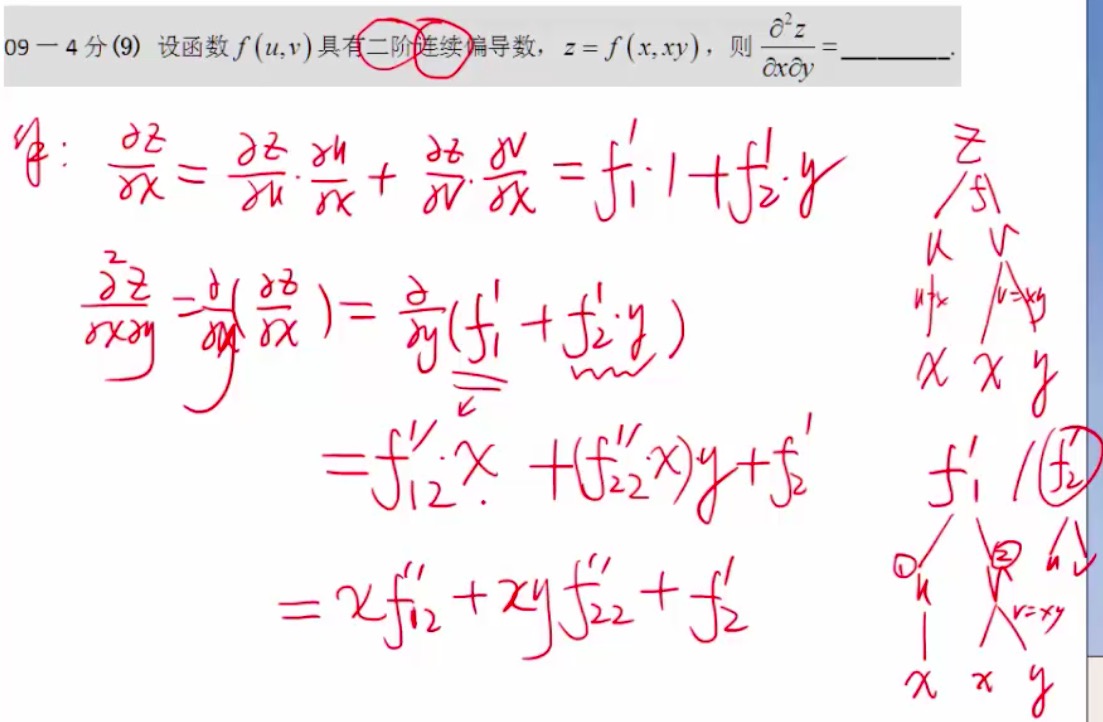 09 — 4 分 (9) 设函数 f(u,v) 具有二阶连续偏导数, z = f(x,xy), 则 ∂²z/∂x∂y = ________.
解: ∂z/∂x = ∂z/∂u · ∂u/∂x + ∂z/∂v · ∂v/∂x = f₁′·1 + f₂′·y
∂²z/∂x∂y = ∂/∂y (∂z/∂x) = ∂/∂y (f₁′ + f₂′·y)
= f₁₂″·x + (f₂₂″·x)y + f₂′
= x f₁₂″ + xy f₂₂″ + f₂′
z
f
u v
u=x v=xy
x x y
f₁′ / f₂′
① ②
u v u v
v=xy
x x y